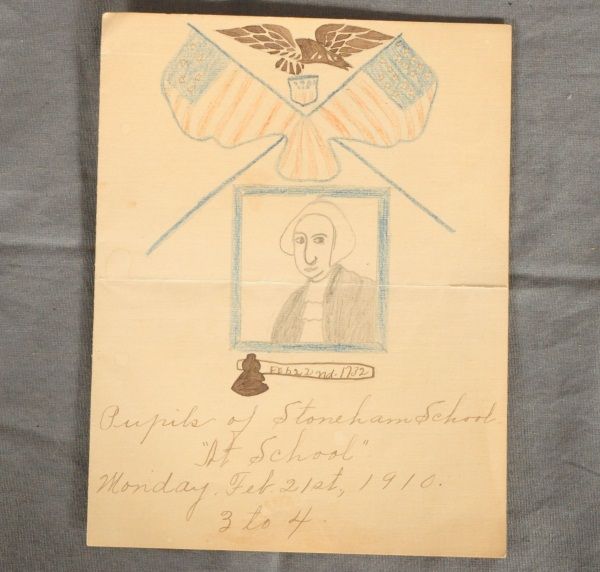 Feb 22nd-1732
Pupils of Stoneham School
"At School"
Monday. Feb. 21st, 1910.
3 to 4.